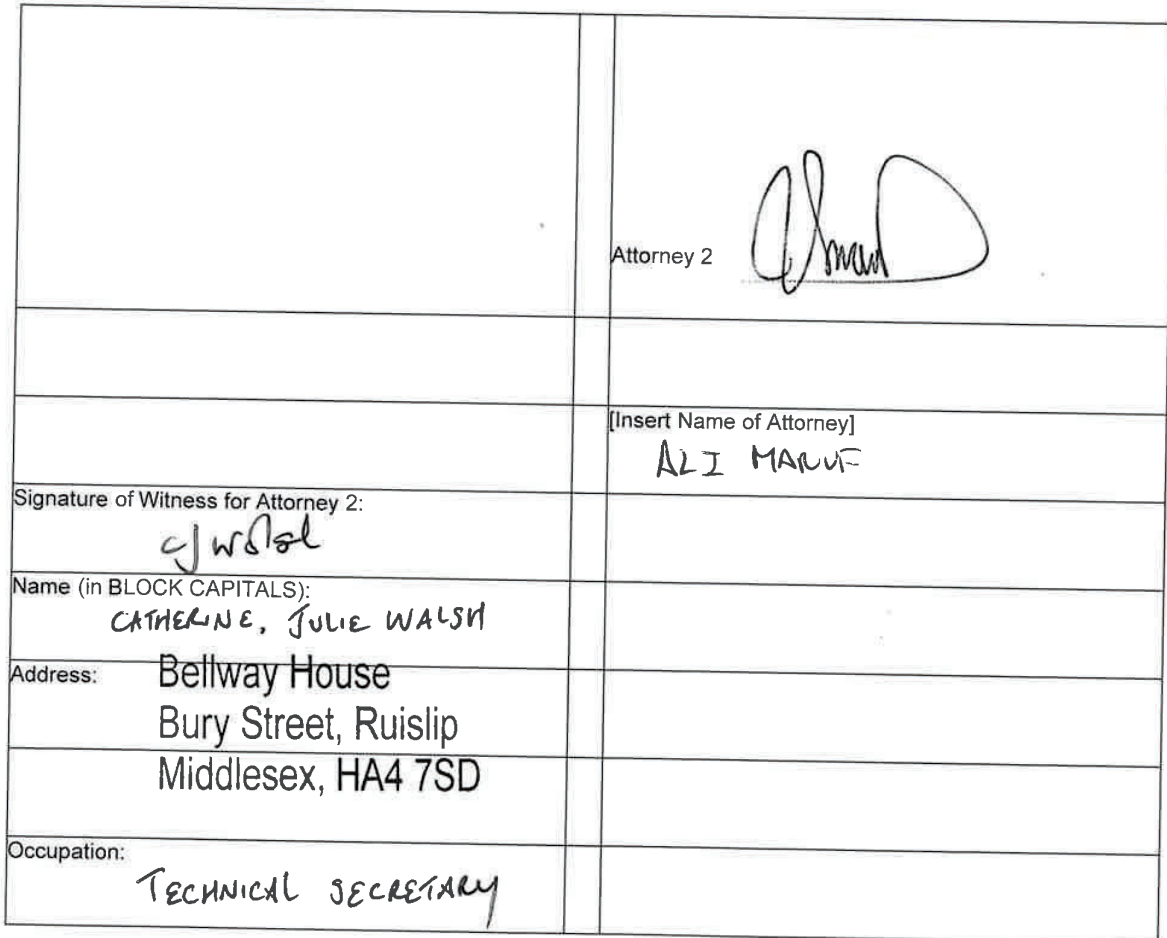 Attorney 2
[Insert Name of Attorney]
ALI MARUF
Signature of Witness for Attorney 2:
CJ Walsh
Name (in BLOCK CAPITALS):
CATHERINE, JULIE WALSH
Address: Bellway House
Bury Street, Ruislip
Middlesex, HA4 7SD
Occupation:
TECHNICAL SECRETARY